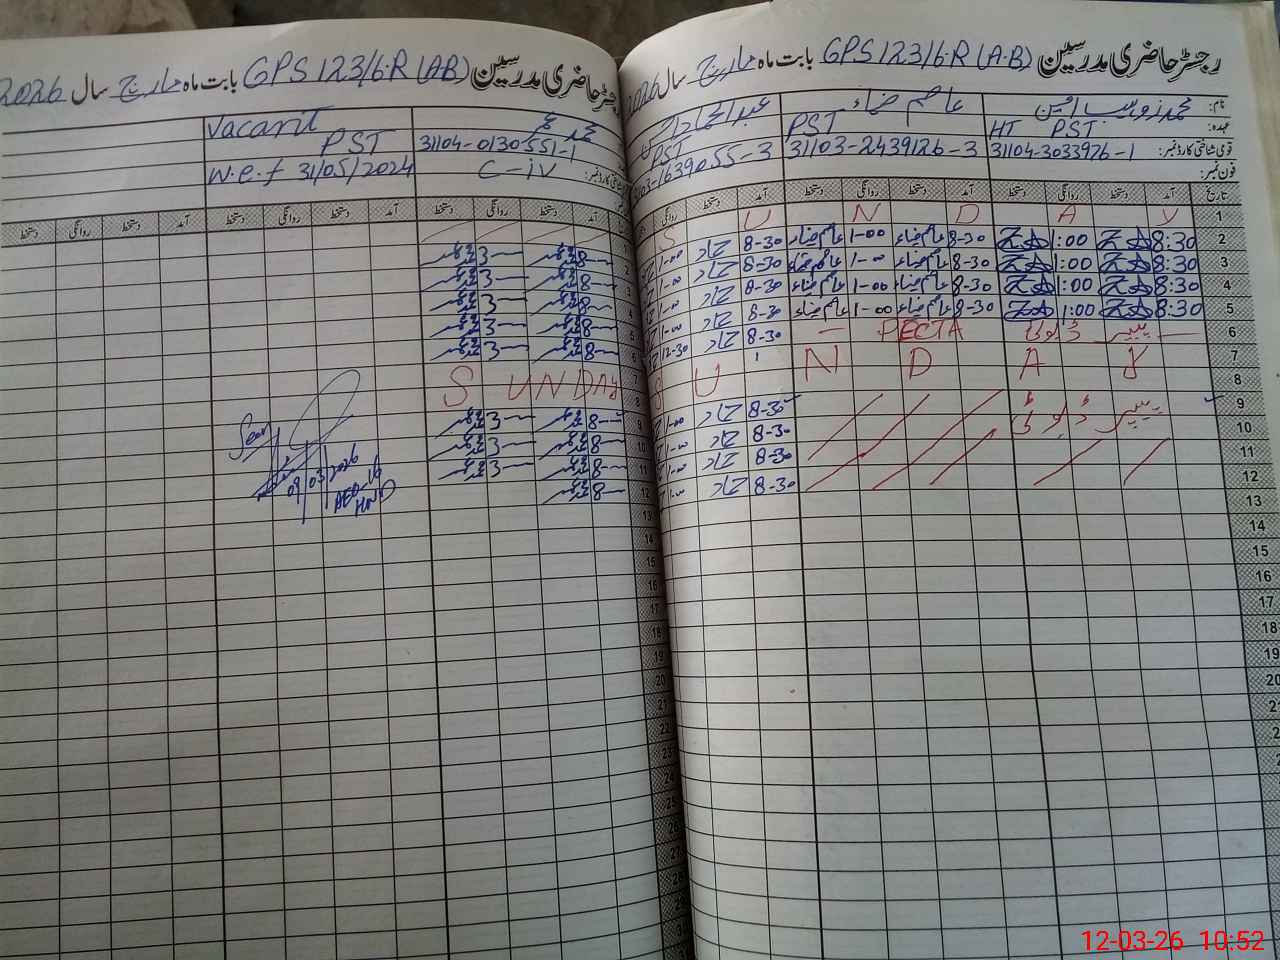 رجسٹر حاضری مدرسین GPS 123/6.R (A.B) بابت ماہ مارچ سال 2026
نام: محمد زوہیب امین عاصم ضیاء
عہدہ: HT PST PST PST
قومی شناختی کارڈ نمبر: 31104-3033926-1 31103-2439126-3 1639055-3
فون نمبر:
تاریخ آمد دستخط روانگی دستخط آمد دستخط روانگی دستخط آمد دستخط روانگی
1 S U N D A Y
2 8:30 1:00 8-30 عاصم ضیاء 1-00 عاصم ضیاء 8-30 حماد 1-00
3 8:30 1:00 8-30 عاصم ضیاء 1-00 عاصم ضیاء 8-30 حماد 1-00
4 8:30 1:00 8-30 عاصم ضیاء 1-00 عاصم ضیاء 8-30 حماد 1-00
5 8:30 1:00 8-30 عاصم ضیاء 1-00 عاصم ضیاء 8-30 حماد 1-00
6 پیپر ڈیوٹی PECTA 8-30 حماد 12-30
7
8 S U N D A Y
9 پیپر ڈیوٹی 8-30 حماد 1-00
10 8-30 حماد 1-00
11 8-30 حماد 1-00
12 8-30 حماد 1-00
13
14
15
16
17
18
19
20
رجسٹر حاضری مدرسین GPS 123/6.R (AB) بابت ماہ مارچ سال 2026
محمد عمر Vacant
31104-0130551-1 PST
C-iv w.e.f 31/05/2024
آمد دستخط روانگی دستخط آمد دستخط روانگی دستخط آمد دستخط روانگی دستخط
2 8 3
3 8 3
4 8 3
5 8 3
6 8 3
7
8 SUNDAY
9 8 3
10 8 3
11 8 3
12 8
13
14
15
16
17
18
19
20
21
22
23
24
25
26
27
28
29
Seen
09/03/2026
AEO-16
HND
12-03-26 10:52